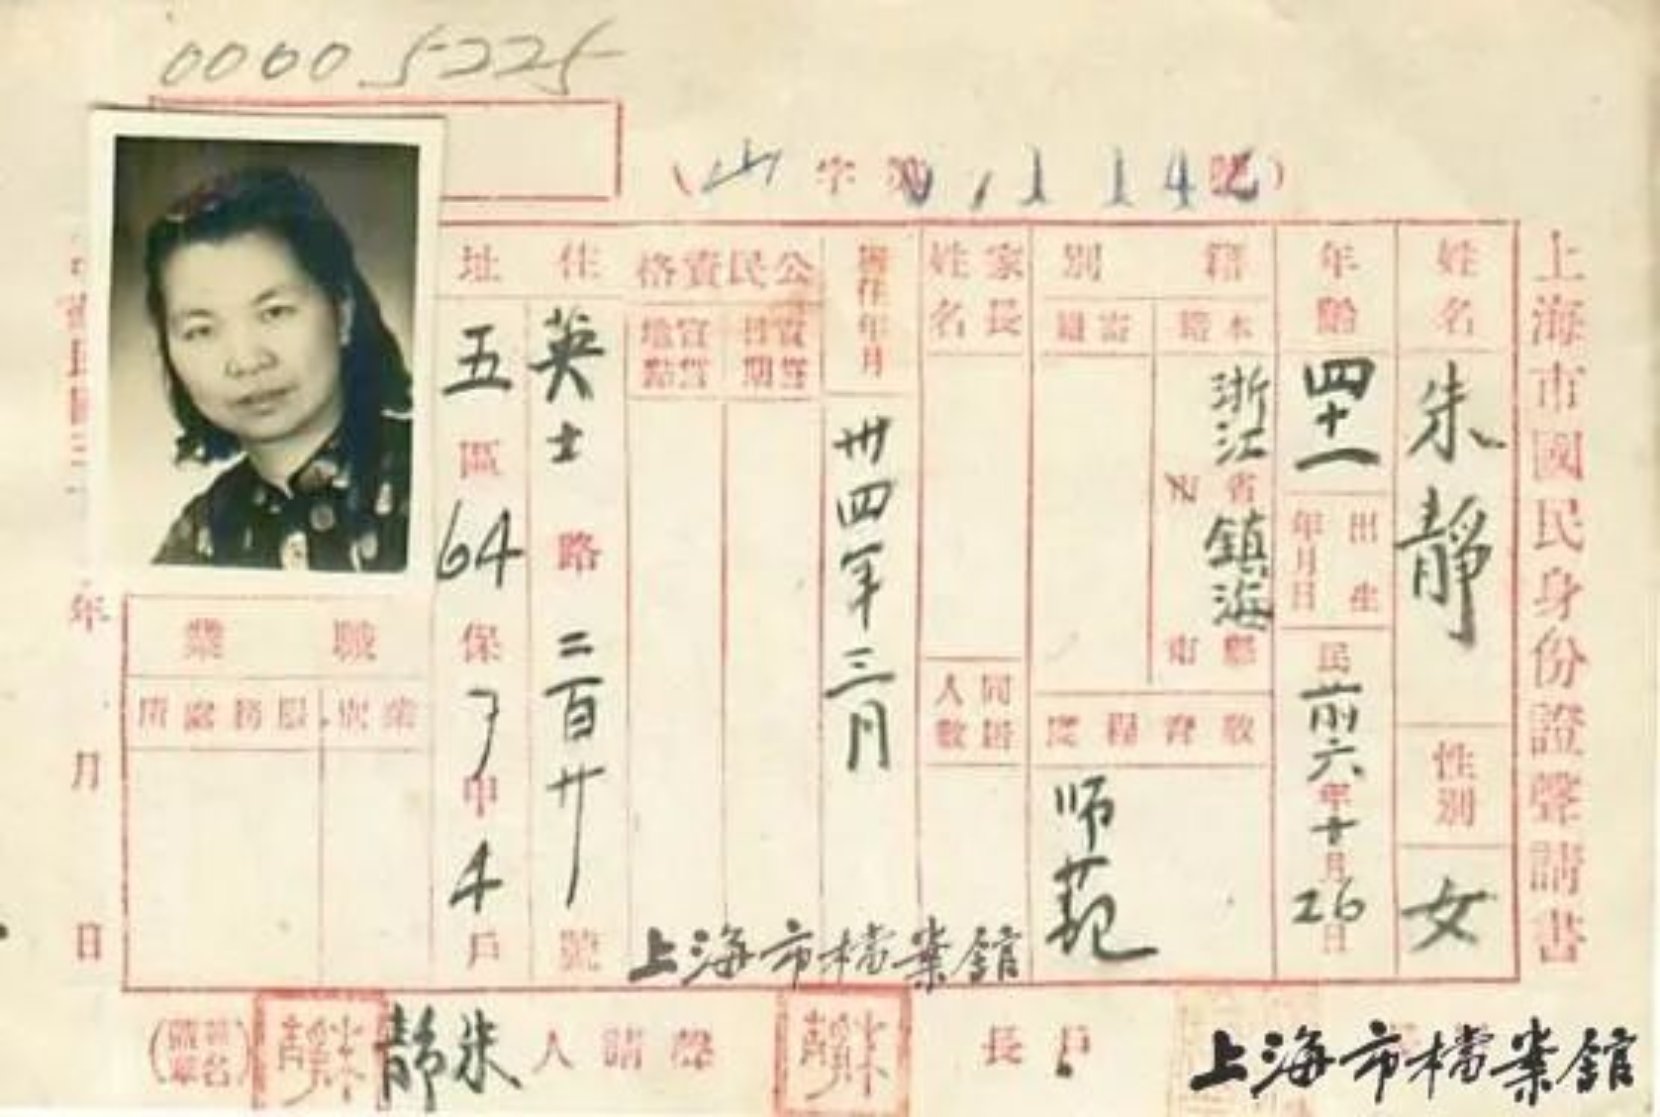 00005225
(山字第 01114 號)
上海市國民身份證聲請書
姓名
朱靜
性別
女
年齡
四十一
出生年月日
民前六年十月26日
籍別
本籍
浙江省鎮海縣市
寄籍
教育程度
师范
家長姓名
同居人數
居住年月
卅四年三月
公民資格
宣誓日期
宣誓地點
住址
英士路二百廿號
五區64保7甲4戶
職業
業別
服務處所
年月日
戶長
朱靜
聲請人
朱靜
朱靜
(簽名蓋章)
上海市檔案館
上海市檔案館